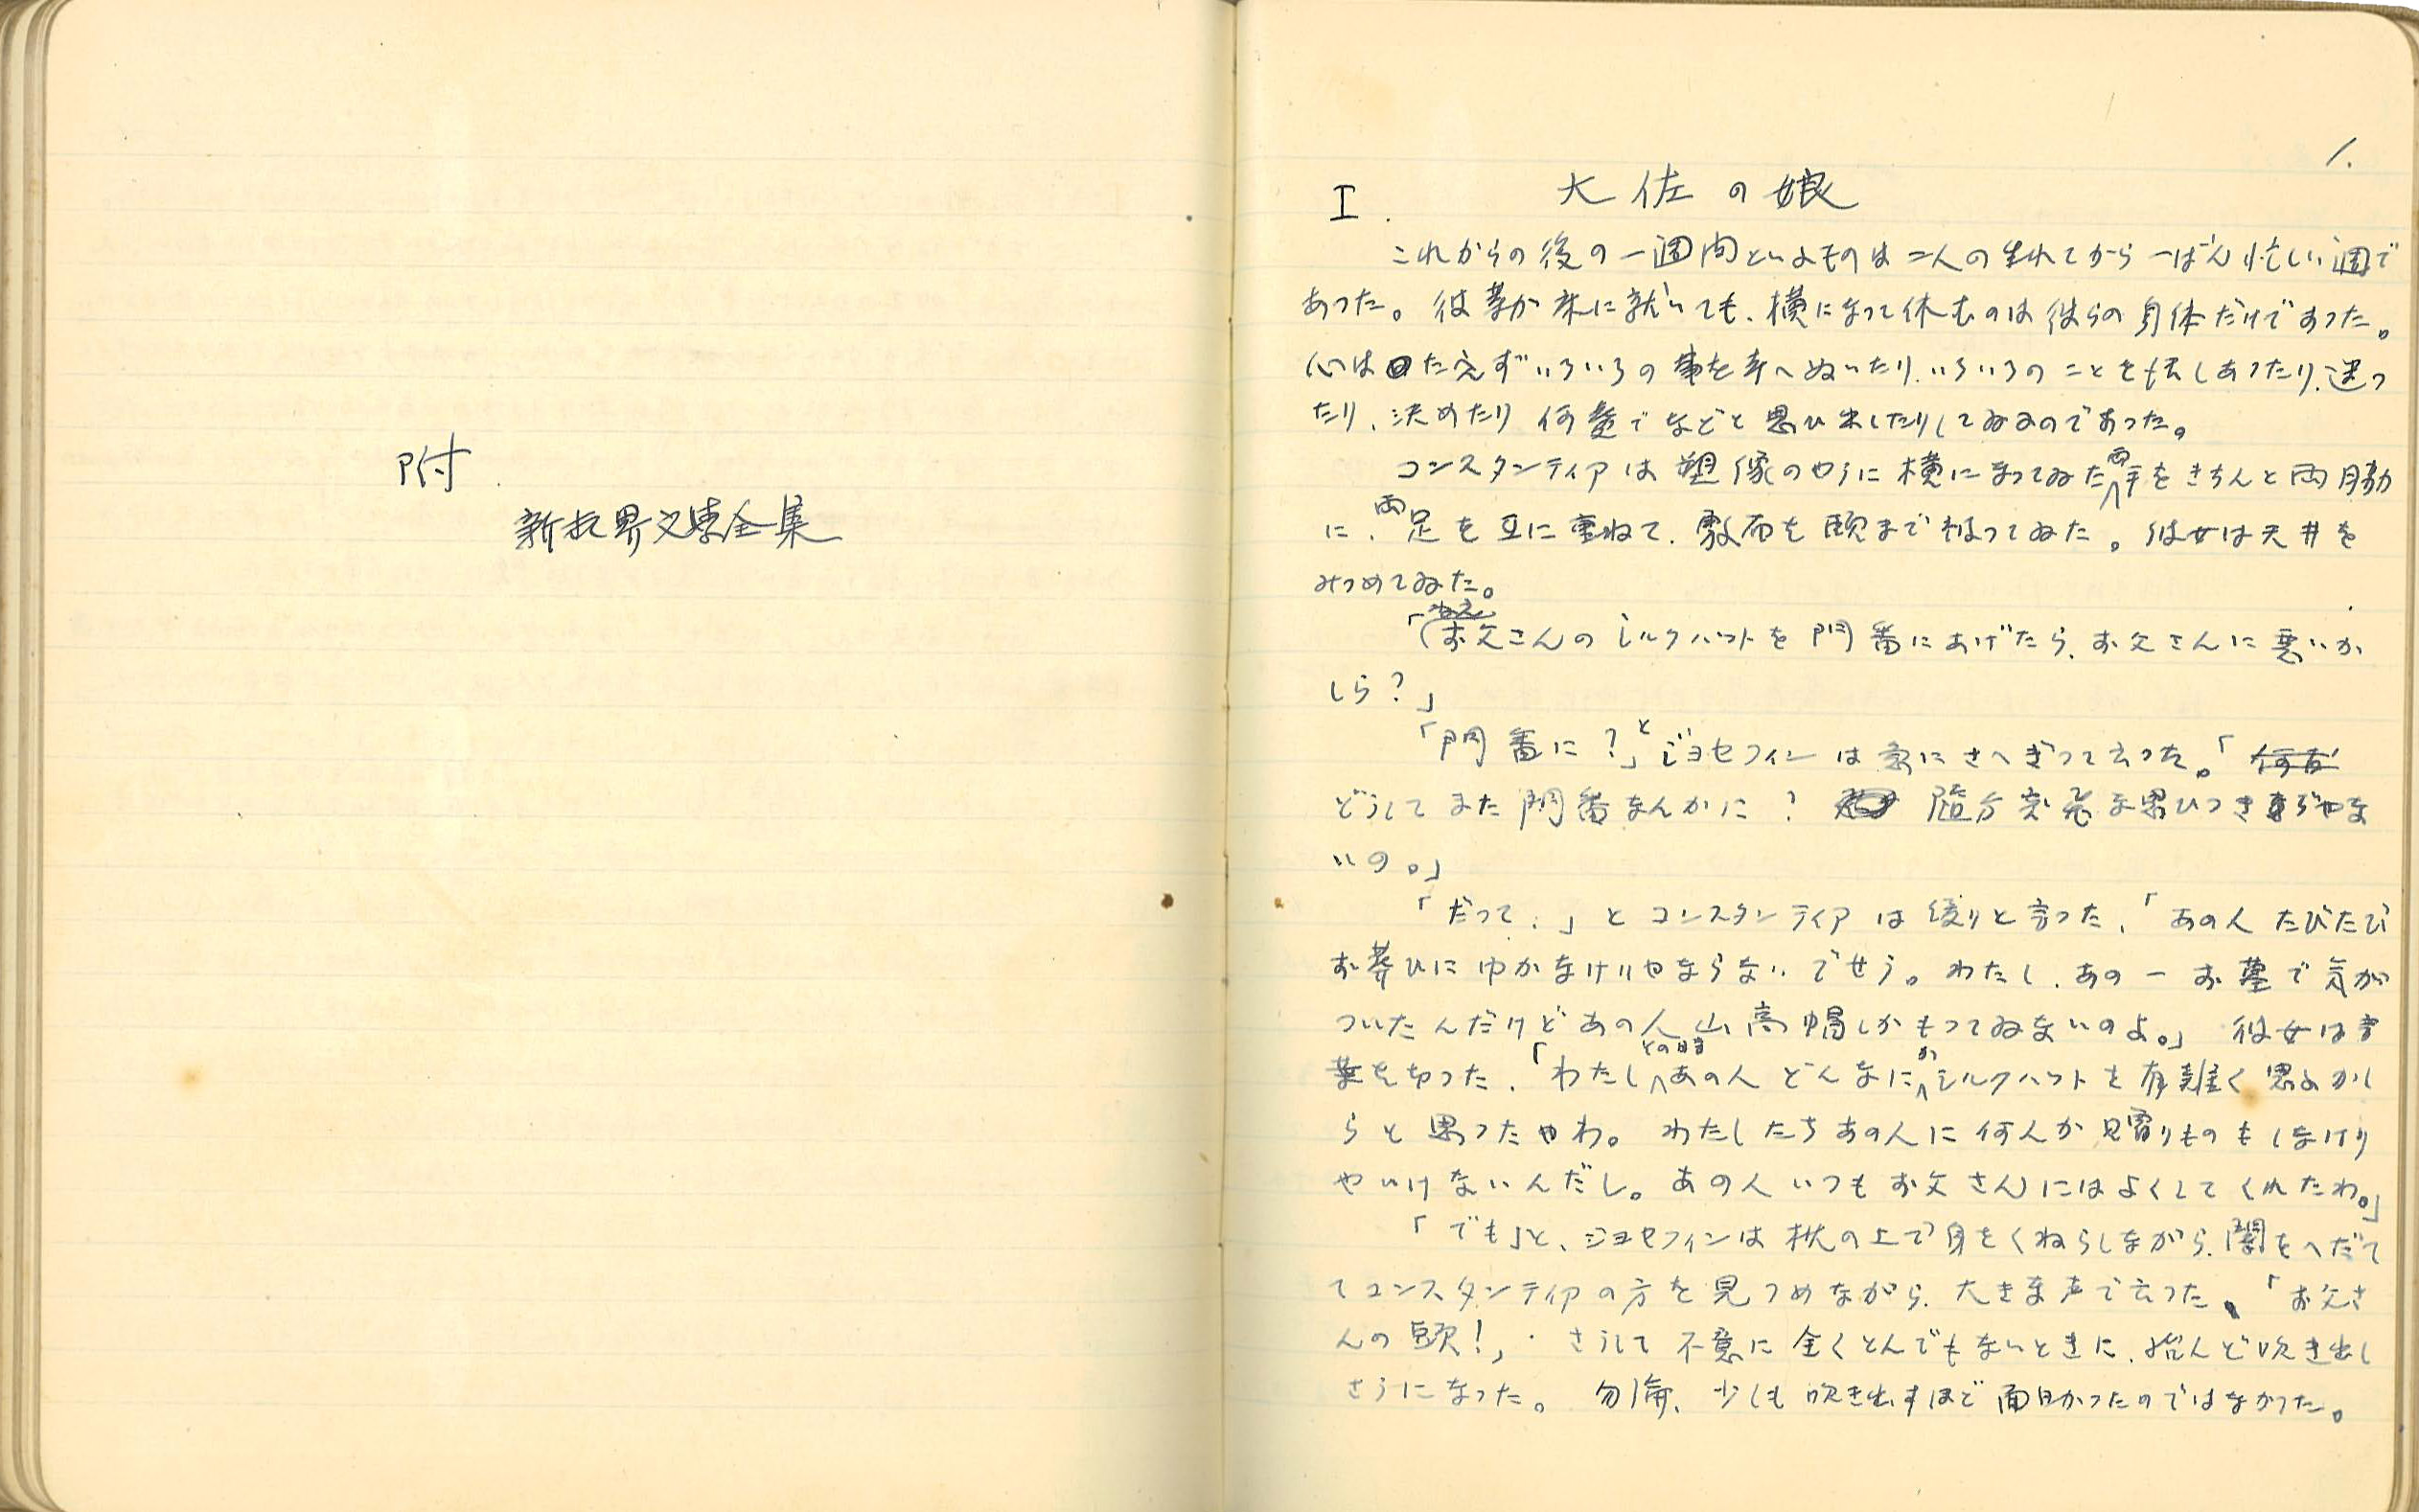 附
新世界文学全集
1.
I. 大佐の娘
これからの後の一週間といふものは二人の生れてから一ばん忙しい週で
あつた。彼等が床に就いても、横になつて休むのは彼らの身体だけであつた。
心はたえずいろいろの事を考へぬいたり、いろいろのことを話しあつたり、迷つ
たり、決めたり 何処でなどと思ひ出したりしてゐるのであつた。
コンスタンティアは塑像のやうに横になつてゐた両手をきちんと両脇
に、両足を互に重ねて、敷布を頤まで被つてゐた。彼女は天井を
みつめてゐた。
「お父さんのシルクハットを門番にあげたら、お父さんに悪いか
しら?」
「門番に?」とジョセフィンは急にさへぎつて云つた。「
どうしてまた門番なんかに? 随分突飛な思ひつきぢやな
いの。」
「だつて.」とコンスタンティアは緩りと言つた、「あの人たびたび
お葬ひにゆかなけりやならないでせう。わたし、あの一お墓で気が
ついたんだけどあの人山高帽しかもつてゐないのよ。」彼女は言
葉を切つた、「わたしその時あの人どんなにかシルクハットを有難く思ふかし
らと思つたわ。わたしたちあの人に何んか贈りものをしなけり
やいけないんだし。あの人いつもお父さんにはよくしてくれたわ。」
「でも」と、ジョセフィンは枕の上で身をくねらしながら、闇をへだて
てコンスタンティアの方を見つめながら、大きな声で云つた、「お父さ
んの頭!」 さうして不意に全くとんでもないときに、殆んど吹き出し
さうになつた。 勿論、少しも吹き出すほど面白かつたのではなかつた。